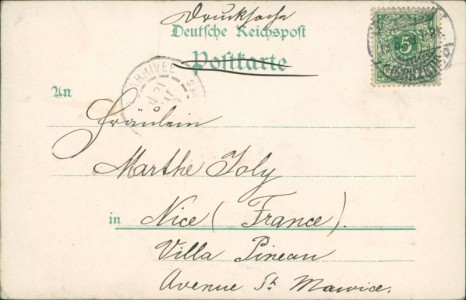 Drucksache
Deutsche Reichspost
Postkarte
5
An
Fräulein
Marthe Joly
in Nice (France).
Villa Pineau
Avenue St Maurice.